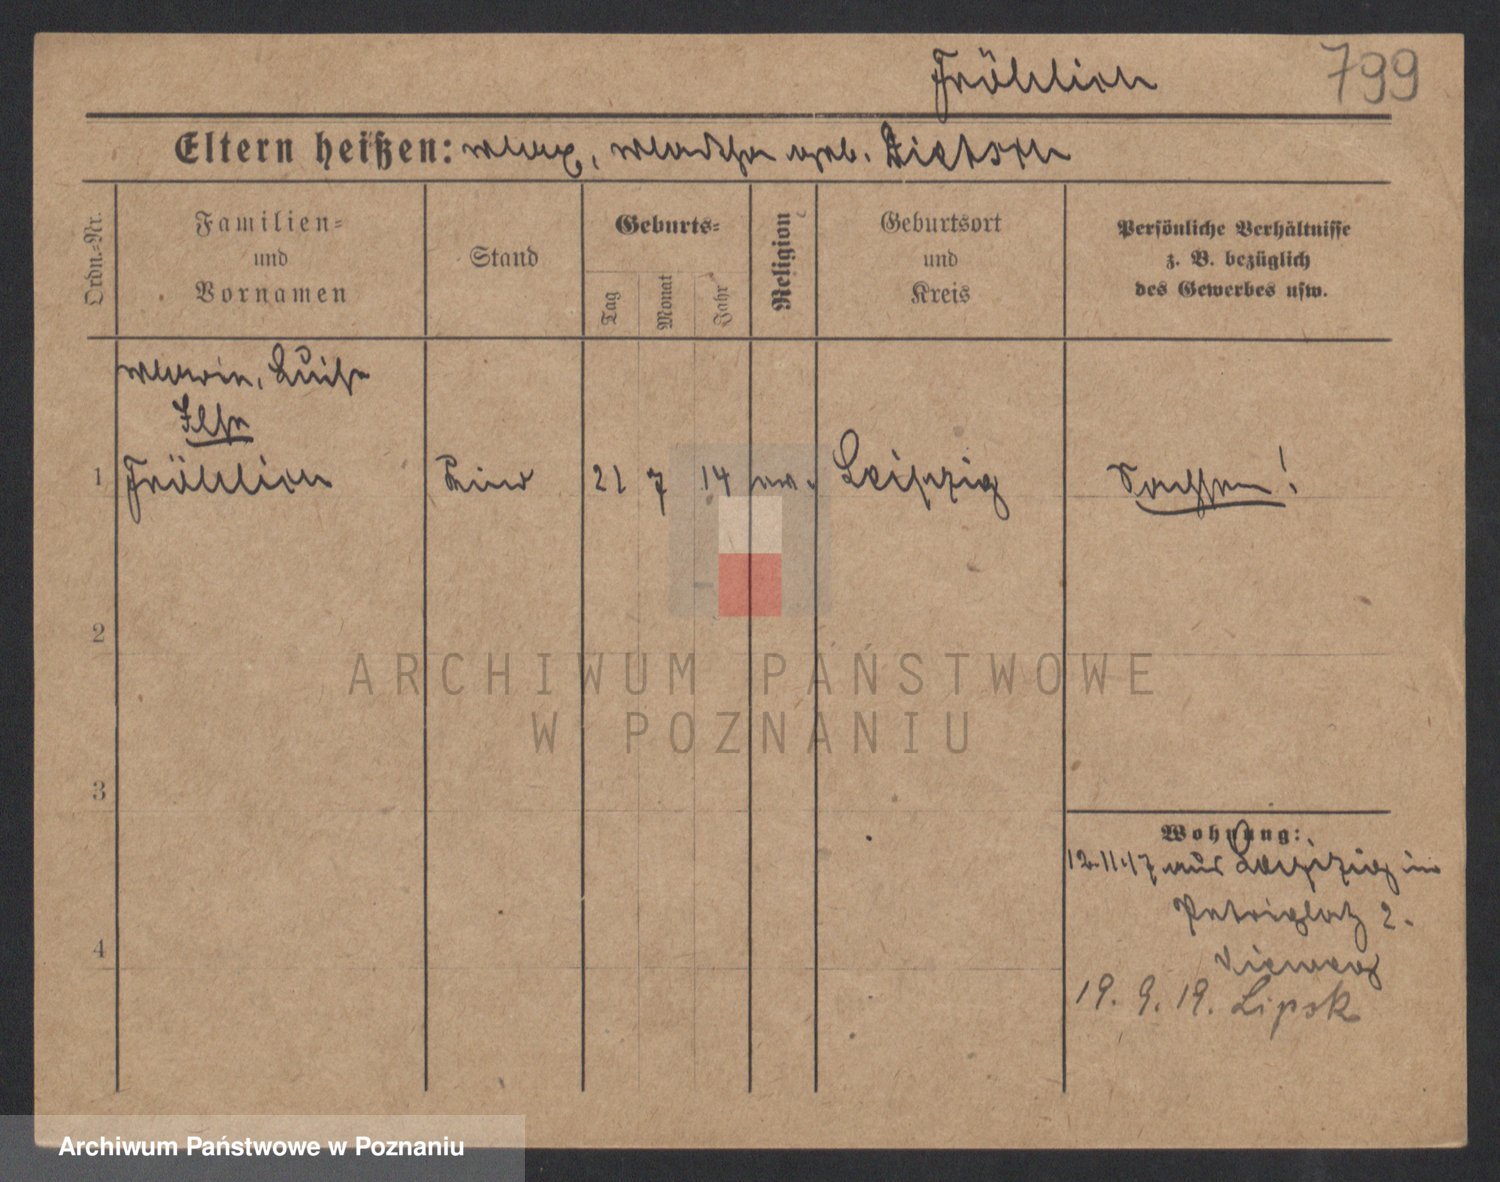 Fröhlich 799
Eltern heißen: Max, Martha geb. Dietrich
Ordn.-Nr.
Familien-
und
Vornamen
Stand
Geburts-
Tag
Monat
Jahr
Religion
Geburtsort
und
Kreis
Persönliche Verhältnisse
z. B. bezüglich
des Gewerbes usw.
Marie, Luise
Ilse
1 Fröhlich Kind 21 7 14 ev. Leipzig Sachsen!
2
3
4
Wohnung:
12.11.17 aus Leipzig in
Petriplatz 2.
19. 9. 19. Lipsk
ARCHIWUM PAŃSTWOWE
W POZNANIU
Archiwum Państwowe w Poznaniu